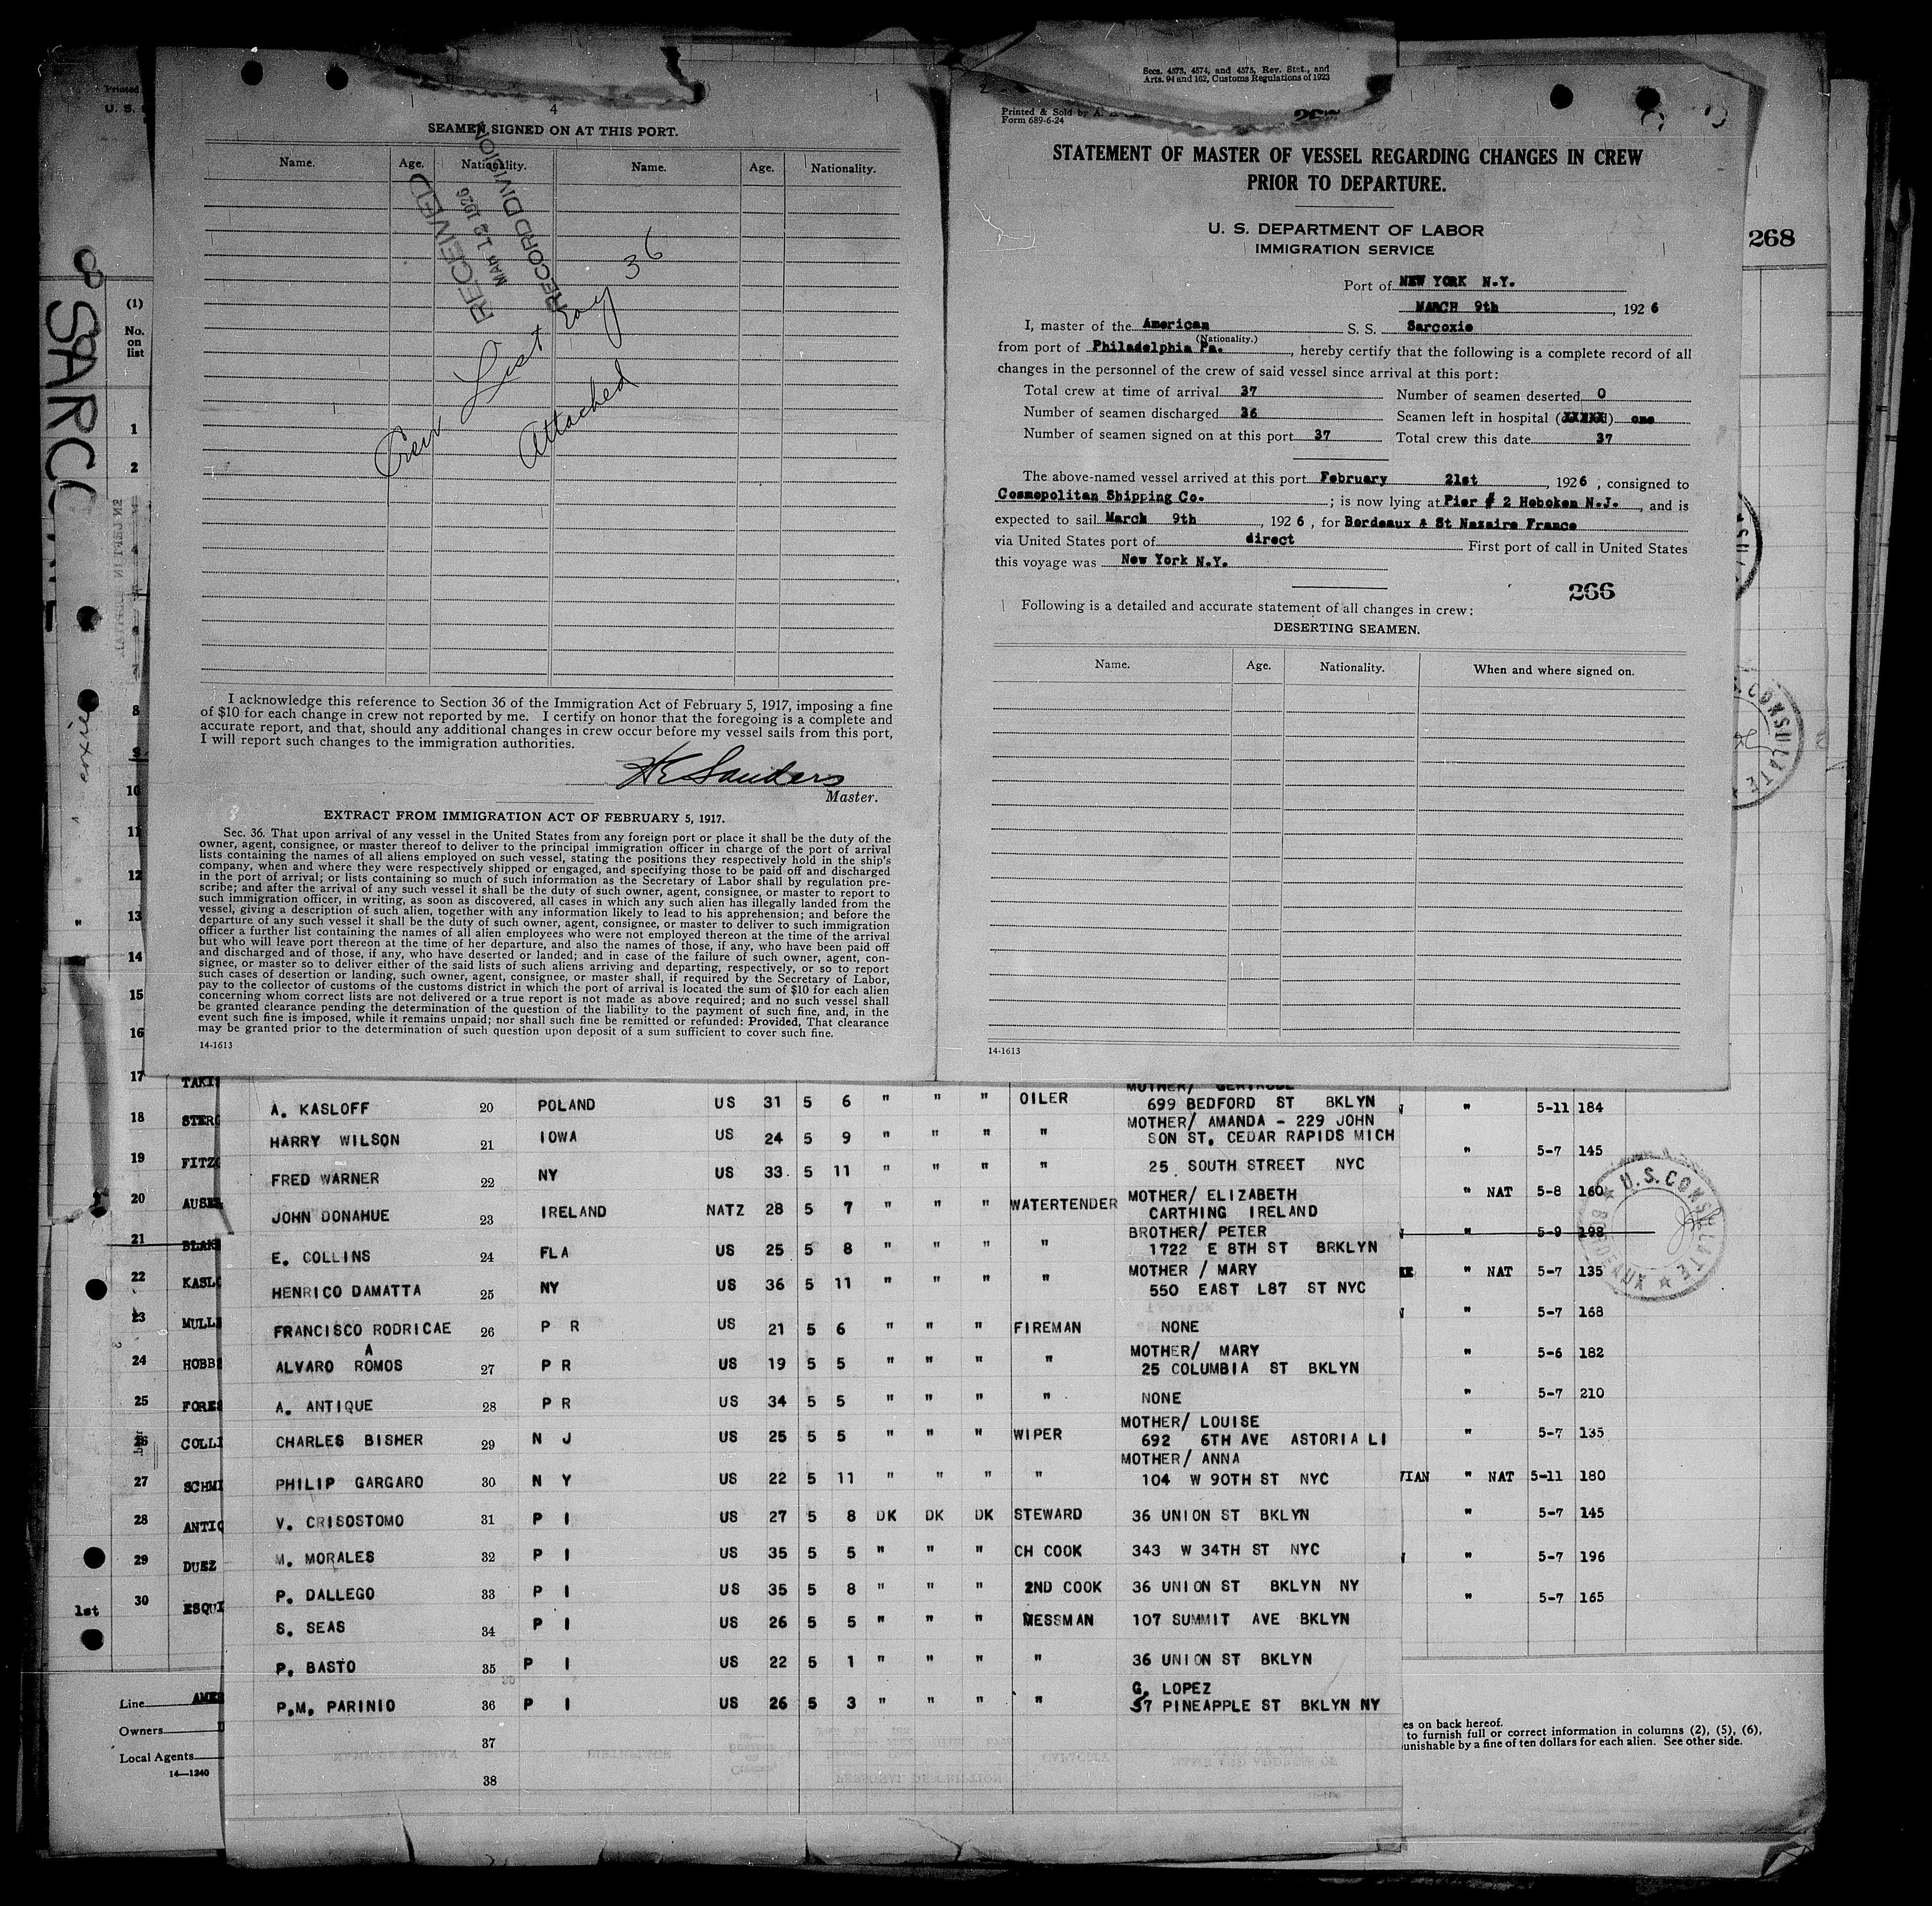 4
SEAMEN SIGNED ON AT THIS PORT.
Name. Age. Nationality. Name. Age. Nationality.
RECEIVED
MAR 12 1926
RECORD DIVISION
Crew List Eng 36
Attached
I acknowledge this reference to Section 36 of the Immigration Act of February 5, 1917, imposing a fine
of $10 for each change in crew not reported by me. I certify on honor that the foregoing is a complete and
accurate report, and that, should any additional changes in crew occur before my vessel sails from this port,
I will report such changes to the immigration authorities.
HE Sanders
Master.
EXTRACT FROM IMMIGRATION ACT OF FEBRUARY 5, 1917.
Sec. 36. That upon arrival of any vessel in the United States from any foreign port or place it shall be the duty of the
owner, agent, consignee, or master thereof to deliver to the principal immigration officer in charge of the port of arrival
lists containing the names of all aliens employed on such vessel, stating the positions they respectively hold in the ship's
company, when and where they were respectively shipped or engaged, and specifying those to be paid off and discharged
in the port of arrival; or lists containing so much of such information as the Secretary of Labor shall by regulation pre-
scribe; and after the arrival of any such vessel it shall be the duty of such owner, agent, consignee, or master to report to
such immigration officer, in writing, as soon as discovered, all cases in which any such alien has illegally landed from the
vessel, giving a description of such alien, together with any information likely to lead to his apprehension; and before the
departure of any such vessel it shall be the duty of such owner, agent, consignee, or master to deliver to such immigration
officer a further list containing the names of all alien employees who were not employed thereon at the time of the arrival
but who will leave port thereon at the time of her departure, and also the names of those, if any, who have been paid off
and discharged and of those, if any, who have deserted or landed; and in case of the failure of such owner, agent, con-
signee, or master so to deliver either of the said lists of such aliens arriving and departing, respectively, or so to report
such cases of desertion or landing, such owner, agent, consignee, or master shall, if required by the Secretary of Labor,
pay to the collector of customs of the customs district in which the port of arrival is located the sum of $10 for each alien
concerning whom correct lists are not delivered or a true report is not made as above required; and no such vessel shall
be granted clearance pending the determination of the question of the liability to the payment of such fine, and, in the
event such fine is imposed, while it remains unpaid; nor shall such fine be remitted or refunded: Provided, That clearance
may be granted prior to the determination of such question upon deposit of a sum sufficient to cover such fine.
14-1613
Secs. 4573, 4574, and 4575, Rev. Stat., and
Arts. 94 and 162, Customs Regulations of 1923
Printed & Sold by A.
Form 689-6-24
STATEMENT OF MASTER OF VESSEL REGARDING CHANGES IN CREW
PRIOR TO DEPARTURE.
U. S. DEPARTMENT OF LABOR
IMMIGRATION SERVICE
Port of NEW YORK N.Y.
MARCH 9th, 1926
I, master of the American S. S. Sarcoxie
(Nationality.)
from port of Philadelphia Pa., hereby certify that the following is a complete record of all
changes in the personnel of the crew of said vessel since arrival at this port:
Total crew at time of arrival 37 Number of seamen deserted 0
Number of seamen discharged 36 Seamen left in hospital (XXXXX) one
Number of seamen signed on at this port 37 Total crew this date 37
The above-named vessel arrived at this port February 21st, 1926, consigned to
Cosmopolitan Shipping Co.; is now lying at Pier # 2 Hoboken N.J., and is
expected to sail March 9th, 1926, for Bordeaux & St Nazaire France
via United States port of direct First port of call in United States
this voyage was New York N.Y.
266
Following is a detailed and accurate statement of all changes in crew:
DESERTING SEAMEN.
Name. Age. Nationality. When and where signed on.
14-1613
268
(1)
No.
on
list
1
2
8
9
10
11
12
13
14
15
16
17 TAKI
18 STERG
19 FITZG
20 AUSE
21 BLAKE
22 KASLO
23 MULL
24 HOBB
25 FORES
26 COLLI
27 SCHMI
28 ANTIQ
29 DUEZ
1st 30 ESQUI
MOTHER/ GERTRUDE
A. KASLOFF 20 POLAND US 31 5 6 " " " OILER 699 BEDFORD ST BKLYN
MOTHER/ AMANDA - 229 JOHN
HARRY WILSON 21 IOWA US 24 5 9 " " " " SON ST, CEDAR RAPIDS MICH
FRED WARNER 22 NY US 33 5 11 " " " " 25 SOUTH STREET NYC
MOTHER/ ELIZABETH
JOHN DONAHUE 23 IRELAND NATZ 28 5 7 " " " WATERTENDER CARTHING IRELAND
BROTHER/ PETER
E. COLLINS 24 FLA US 25 5 8 " " " " 1722 E 8TH ST BRKLYN
MOTHER / MARY
HENRICO DAMATTA 25 NY US 36 5 11 " " " " 550 EAST L87 ST NYC
FRANCISCO RODRICAE 26 P R US 21 5 6 " " " FIREMAN NONE
A MOTHER/ MARY
ALVARO ROMOS 27 P R US 19 5 5 " " " " 25 COLUMBIA ST BKLYN
A. ANTIQUE 28 P R US 34 5 5 " " " " NONE
MOTHER/ LOUISE
CHARLES BISHER 29 N J US 25 5 5 " " " WIPER 692 6TH AVE ASTORIA LI
MOTHER/ ANNA
PHILIP GARGARO 30 N Y US 22 5 11 " " " " 104 W 90TH ST NYC
V. CRISOSTOMO 31 P I US 27 5 8 DK DK DK STEWARD 36 UNION ST BKLYN
M. MORALES 32 P I US 35 5 5 " " " CH COOK 343 W 34TH ST NYC
P. DALLEGO 33 P I US 35 5 8 " " " 2ND COOK 36 UNION ST BKLYN NY
S. SEAS 34 P I US 26 5 5 " " " MESSMAN 107 SUMMIT AVE BKLYN
P. BASTO 35 P I US 22 5 1 " " " " 36 UNION ST BKLYN
G. LOPEZ
P.M. PARINIO 36 P I US 26 5 3 " " " " 37 PINEAPPLE ST BKLYN NY
37
38
" 5-11 184
" 5-7 145
" NAT 5-8 160
" 5-9 198
" NAT 5-7 135
" 5-7 168
" 5-6 182
" 5-7 210
" 5-7 135
VIAN " NAT 5-11 180
" 5-7 145
" 5-7 196
" 5-7 165
U.S. CONSULATE
BORDEAUX
Line AME
Owners
Local Agents
14-1240
es on back hereof.
to furnish full or correct information in columns (2), (5), (6),
unishable by a fine of ten dollars for each alien. See other side.